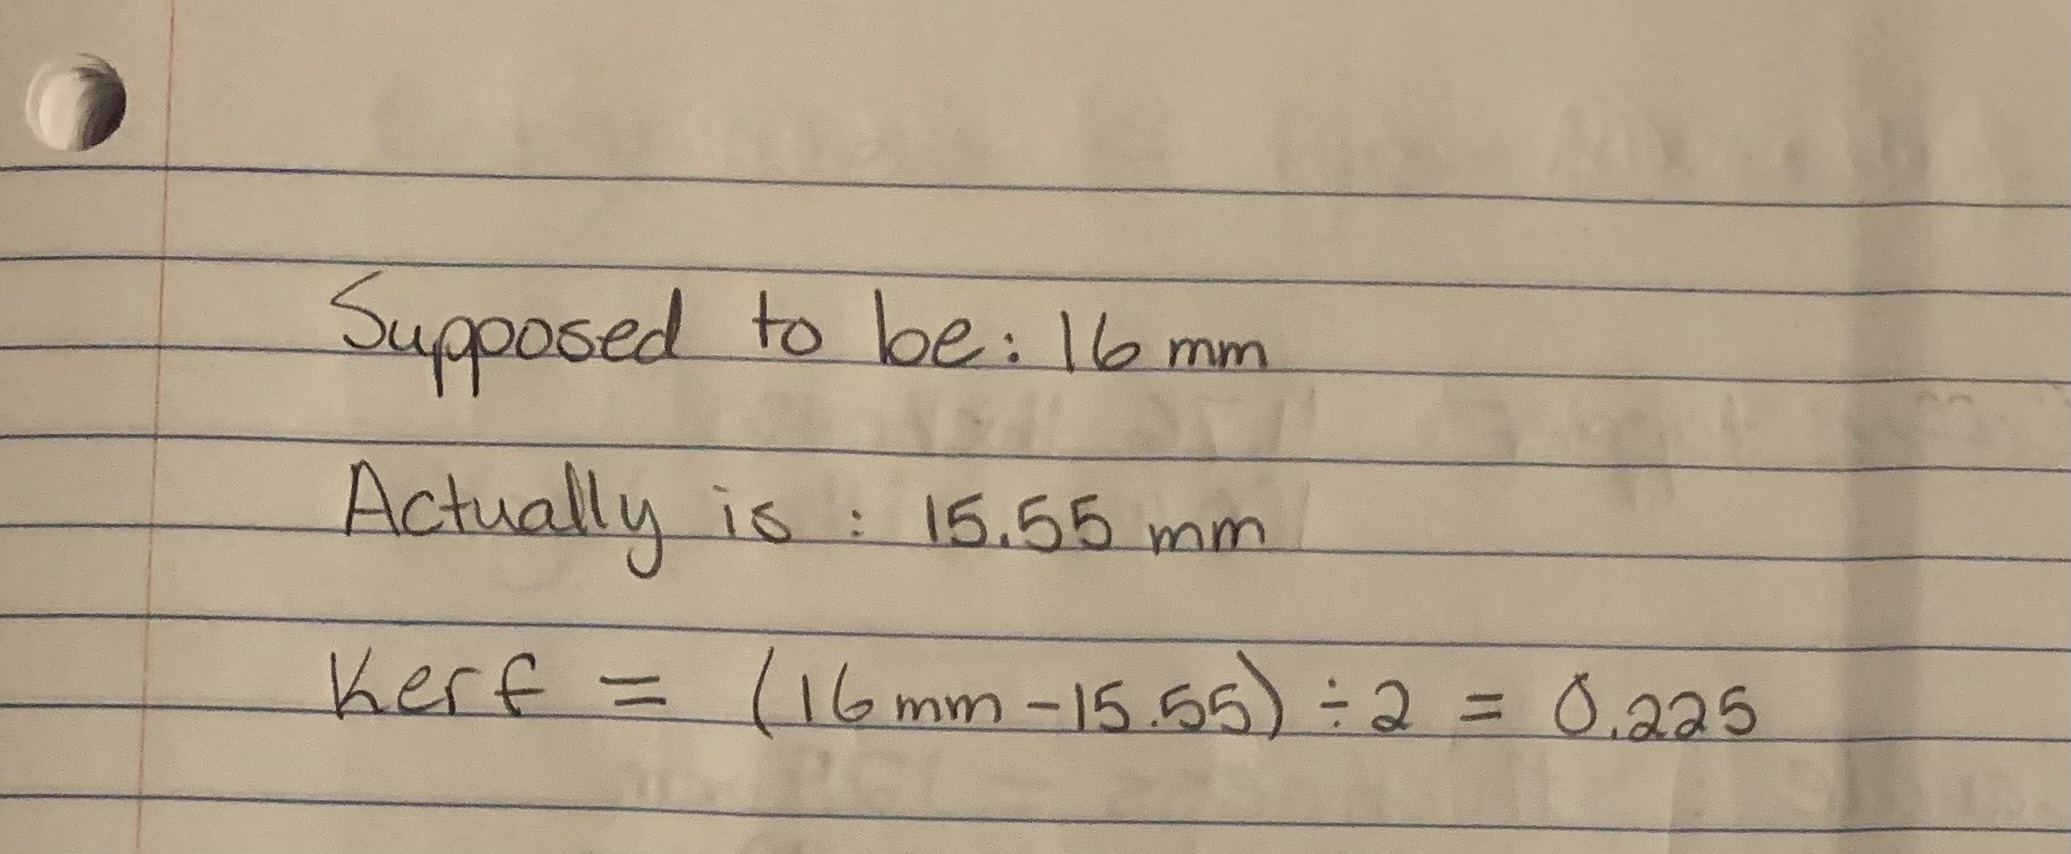 Supposed to be: 16 mm
Actually is: 15.55 mm
Kerf = (16mm-15.55) ÷ 2 = 0.225